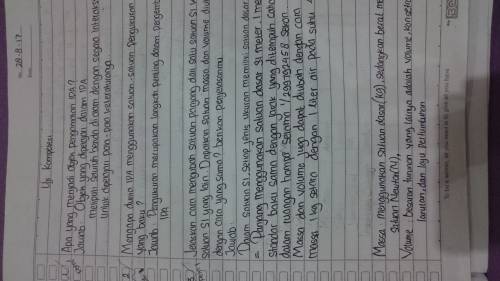 28-8-17
Uji Kompetensi
1. Apa yang menjadi objek pengamatan IPA?
Jawab: Objek yang dipelajari dalam IPA
meliputi seluruh benda di alam dengan segala interaksinya
untuk dipelajari pola-pola keteraturannya.
2. Mengapa dunia IPA menggunakan satuan-satuan pengukuran
yang baku?
Jawab: Pengukuran merupakan langkah penting dalam
IPA
3. Jelaskan cara mengubah satuan panjang dari satu satuan SI ke
satuan SI yang lain. Dapatkah satuan massa dan volume diubah
dengan cara yang sama? berikan penjelasannya
Jawab:
Dalam satuan SI, setiap jenis ukuran memiliki satuan dasar.
= Panjang menggunakan satuan dasar SI meter. 1 meter
standar baku sama dengan jarak yang ditempuh cahaya
dalam ruangan hampa selama 1/299792458 sekon.
Massa dan volume juga dapat diubah dengan cara
massa 1 kg sama dengan 1 liter air pada suhu 4
Massa: menggunakan satuan dasar (kg), sedangkan berat
satuan Newton (N).
Volume: Besaran turunan yang lainya adalah volume, konsentrasi
larutan, dan laju pertumbuhan